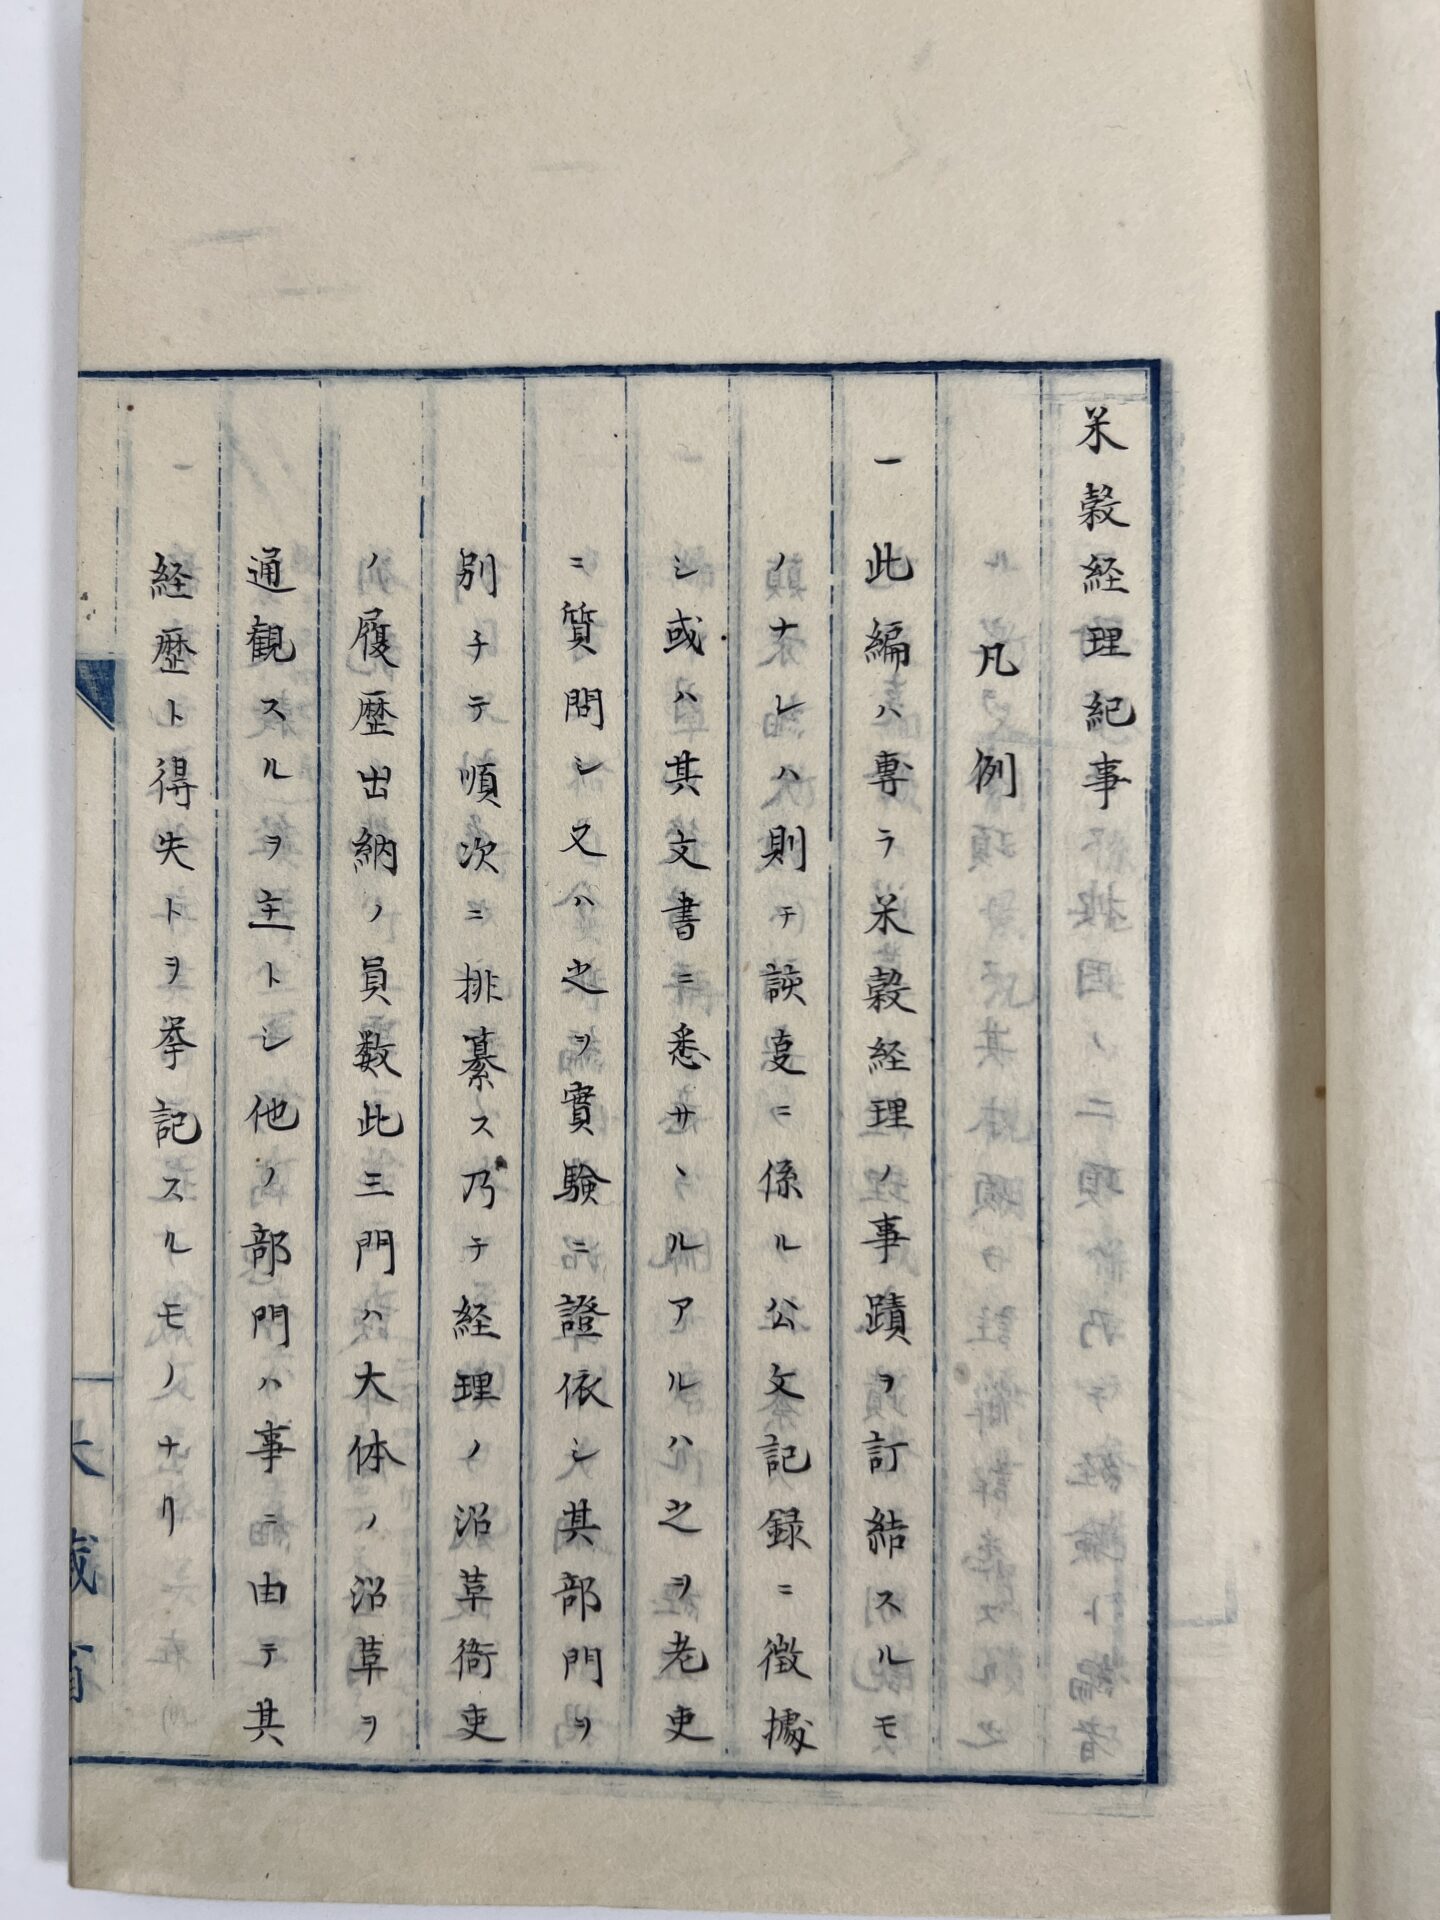 米穀経理紀事
凡例
一此編ハ專ラ米穀経理ノ事蹟ヲ訂結スルモ
ノナレハ則チ該事ニ係ル公文記録ニ徴據
シ或ハ其文書ニ悉サヽルアルハ之ヲ老吏
ニ質問シ又ハ之ヲ實験ニ證依シ其部門ヲ
別チテ順次ニ排纂ス乃チ経理ノ沿革衙吏
ノ履歴出納ノ員数此三門ハ大体ノ沿革ヲ
通観スルヲ主トシ他ノ部門ハ事ニ由テ其
経歴ト得失トヲ挙記スルモノナリ
大蔵省